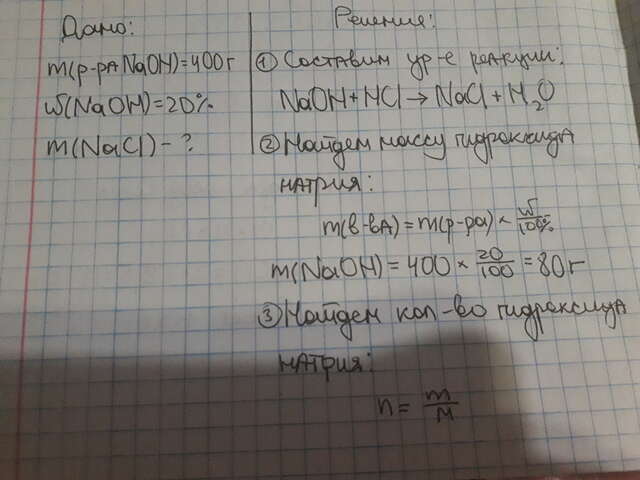 Дано:
m(р-ра NaOH)=400г
ω(NaOH)=20%
m(NaCl) - ?
Решение:
① Составим ур-е реакции:
NaOH + HCl → NaCl + H₂O
② Найдем массу гидроксида
натрия:
m(в-ва) = m(р-ра) × w/100%
m(NaOH) = 400 × 20/100 = 80г
③ Найдем кол-во гидроксида
натрия:
n = m/M